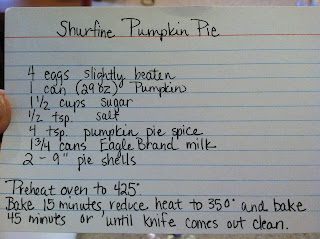 Shurfine Pumpkin Pie
4 eggs slightly beaten
1 can (29 oz) Pumpkin
1 1/2 cups sugar
1/2 tsp. salt
4 tsp. pumpkin pie spice
1 3/4 cans Eagle Brand milk
2 - 9" pie shells
Preheat oven to 425°.
Bake 15 minutes, reduce heat to 350° and bake
45 minutes or until knife comes out clean.